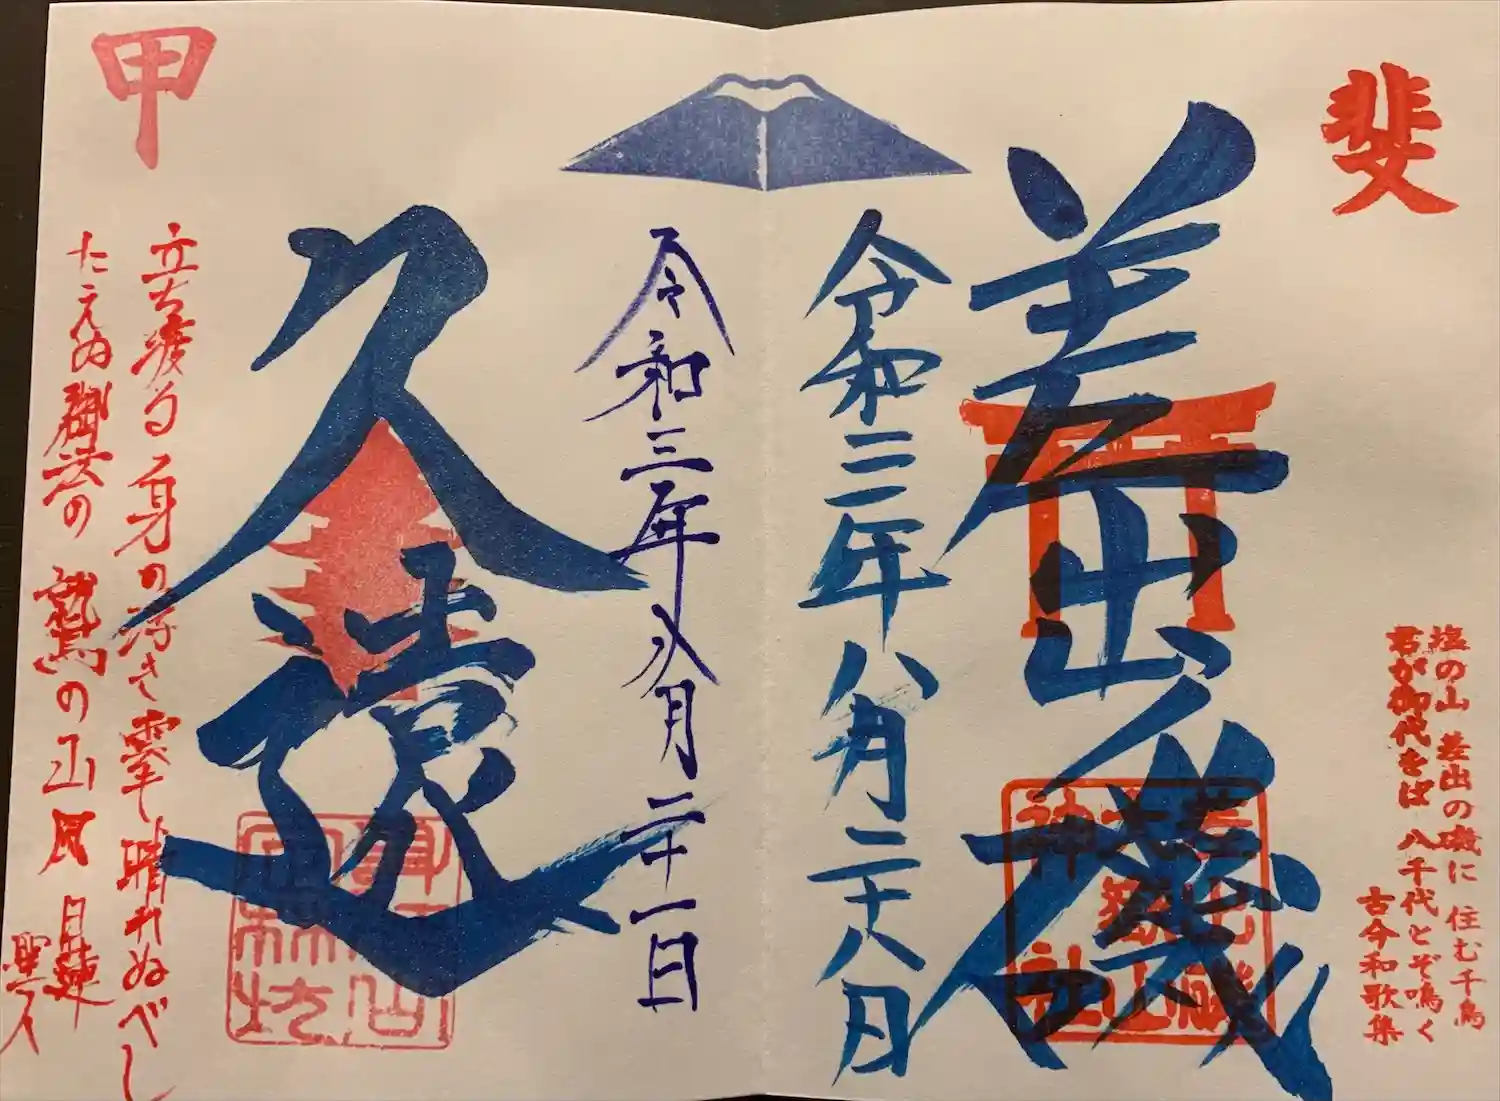 斐
差出ノ磯
塩の山 差出の磯に 住む千鳥
君が御代をば 八千代とぞ鳴く
古今和歌集
令和三年八月二十八日
甲
令和三年八月二十一日
久遠
立ち渡る 身の浮き雲も 晴れぬべし
たえぬ御法の 鷲の山風 日蓮
聖人